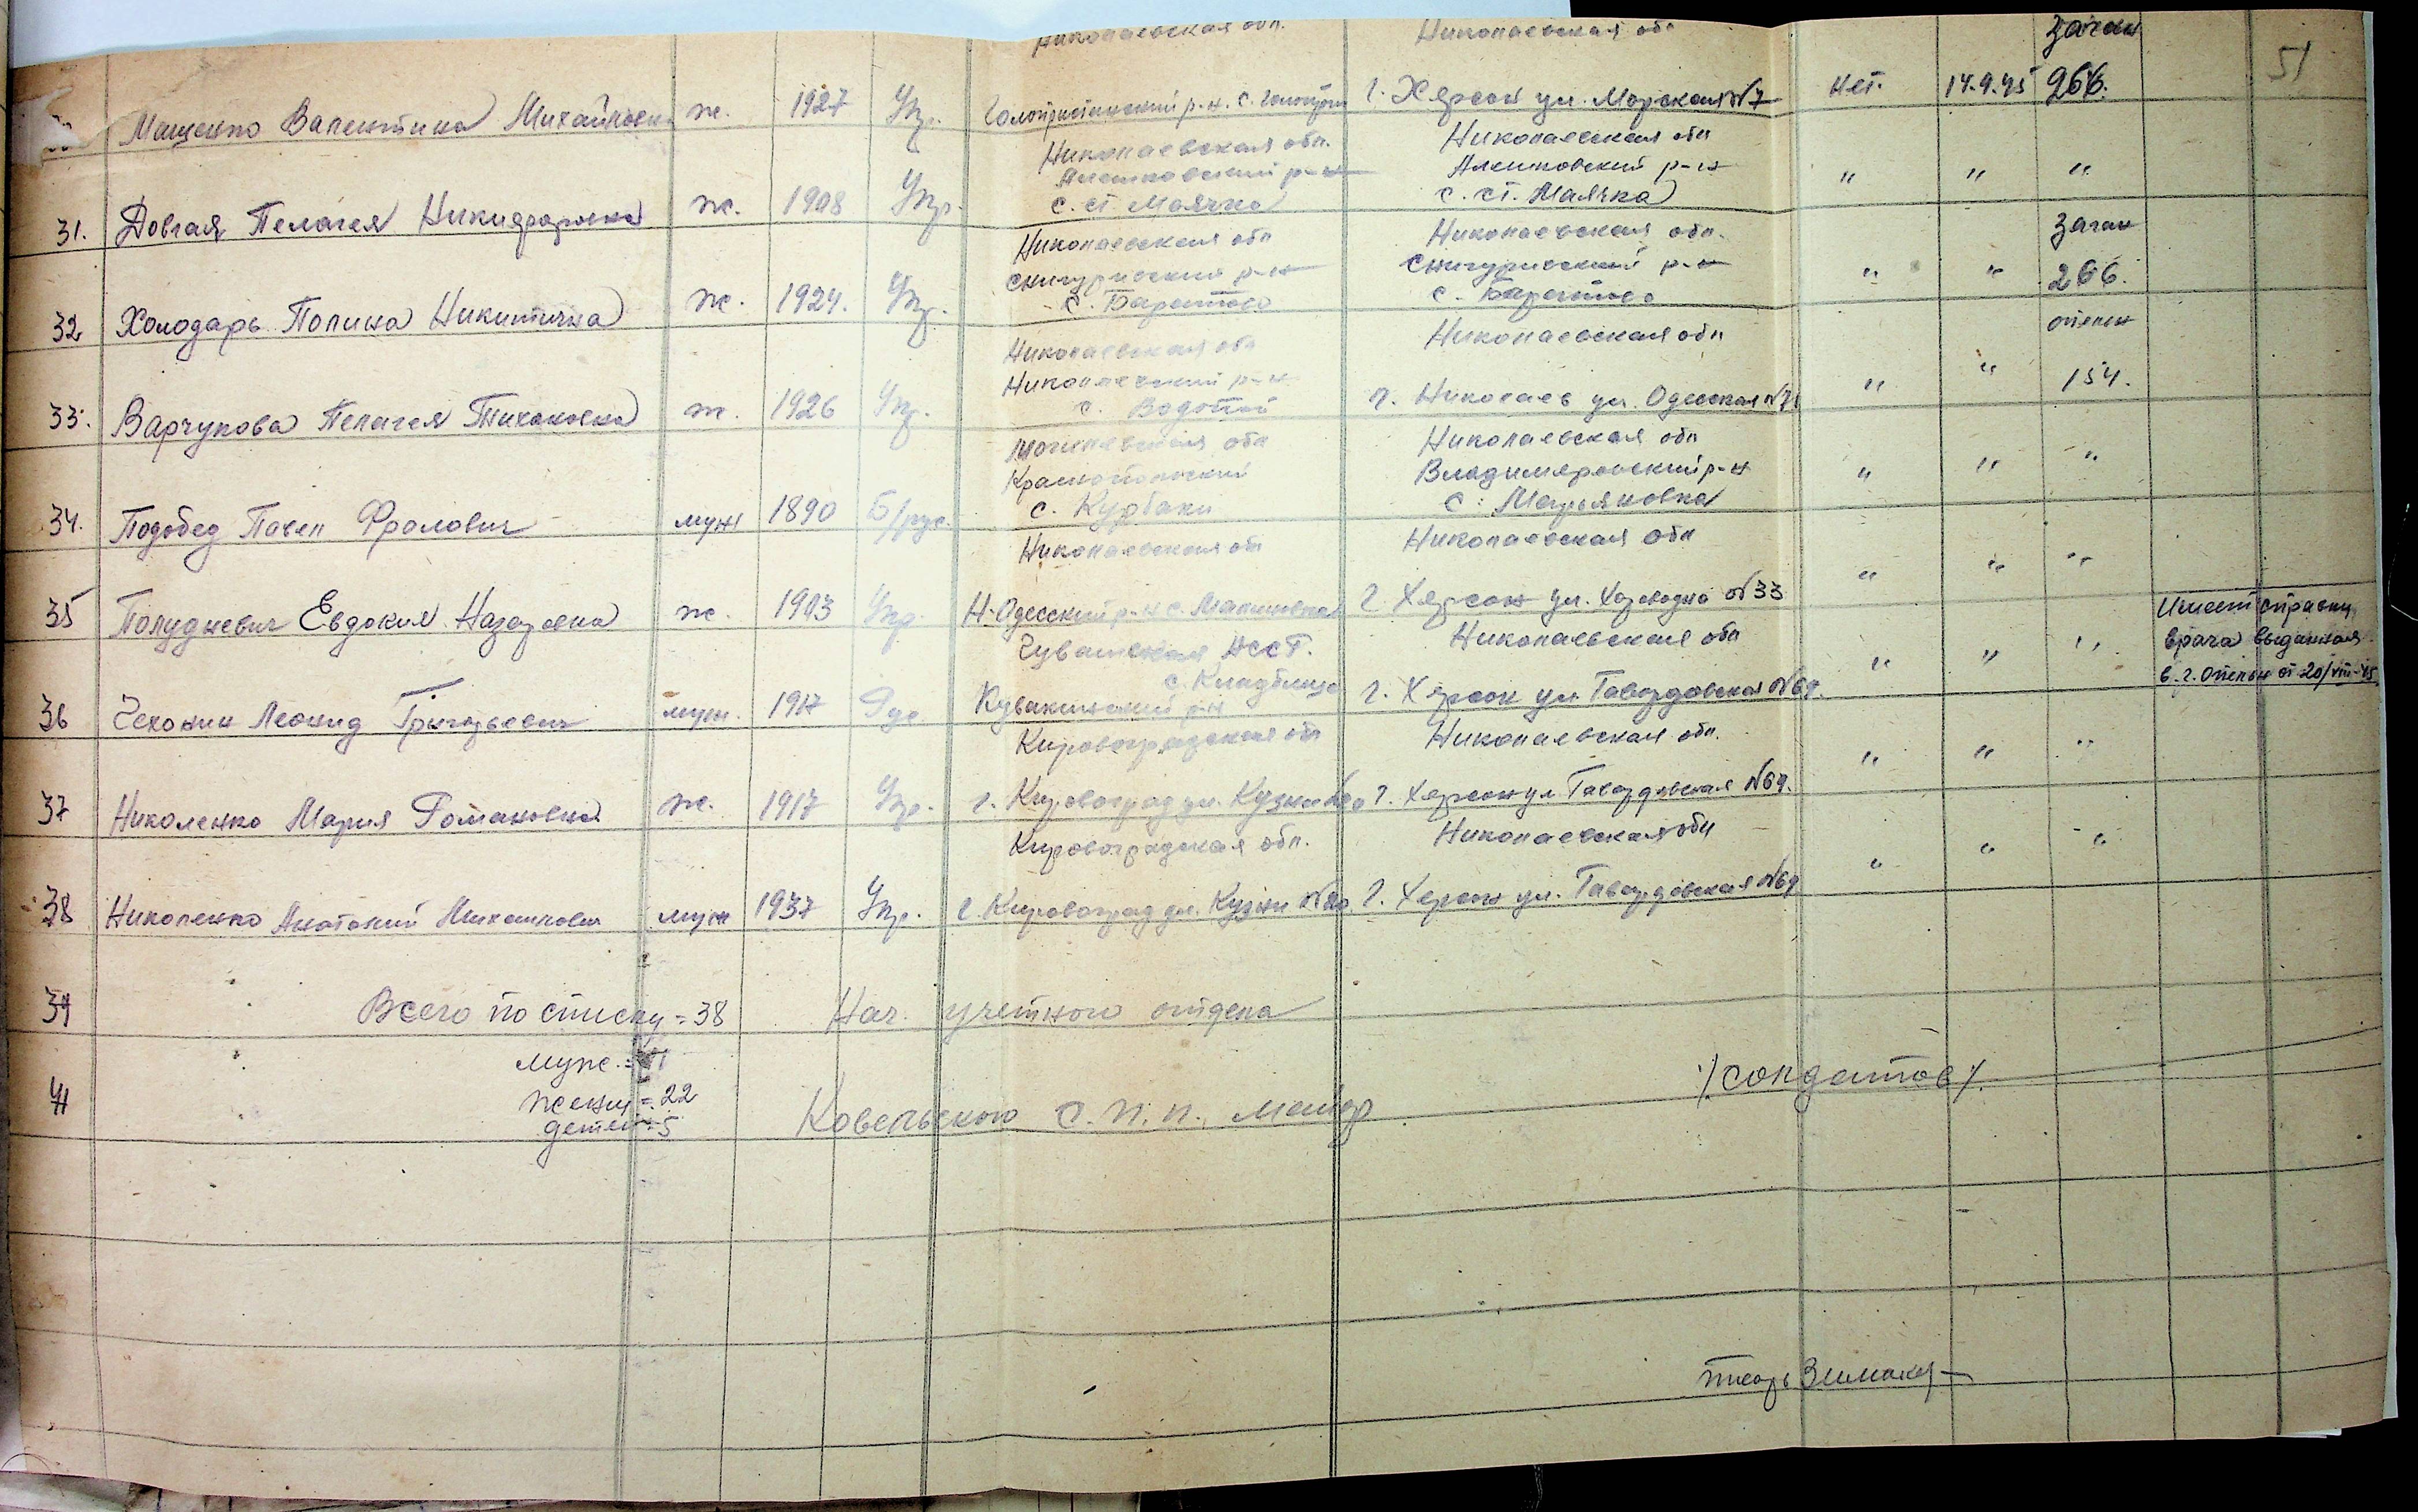 Николаевская обл. Николаевская обл Заган
51
Мащенко Валентина Михайловна ж. 1927 Укр. Голопристинский р-н. с. г. Херсон ул. Морская №7 нет. 14.9.45 266.
Николаевская обл. Николаевская обл
Алешковский р-н Алешковский р-н
31. Довгая Пелагея Никифоровна ж. 1908 Укр. с. ст. Маячка с. ст. Маячка " " "
Николаевская обл Николаевская обл. Заган
Снигуриевский р-н Снигуриевский р-н
32 Холодарь Полина Никитична ж. 1924. Укр. с. Баратово с. Баратово " " 266.
Николаевская обл Николаевская обл опельн
Николаевский р-н
33. Варчукова Пелагея Тихоновна ж. 1926 Укр. с. Водопой г. Николаев ул. Одесская " " 154.
Могилевская обл Николаевская обл
Краснопольский Владимировский р-н
34. Подобед Павел Фролович муж 1890 Б/рус. с. Курбаки с. Марьяновка " " "
Николаевская обл Николаевская обл
35 Полудневич Евдокия Назаровна ж. 1903 Укр. Н-Одесский р-н с. г. Херсон ул. №33 " " "
Чувашская АССР. Николаевская обл
с. Кладбища
36 Чехонин Леонид Григорьевич муж. 1917 Рус. Кувакинский р-н г. Херсон ул. №69. " " " Имеет справку врача выданная в г. Опельн от 20/VIII-45
Кировоградская обл Николаевская обл.
37 Николенко Мария Романовна ж. 1917 Укр. г. Кировоград ул. г. Херсон ул №69. " " "
Кировоградская обл. Николаевская обл
38 Николенко Анатолий Михайлович муж 1937 Укр. г. Кировоград ул. г. Херсон ул. №69 " " "
39 Всего по списку = 38 Нач. учетного отдела
муж. = 11
41 женщ = 22 Ковельского С.П.П. майор /Солдатов/.
детей = 5
писарь